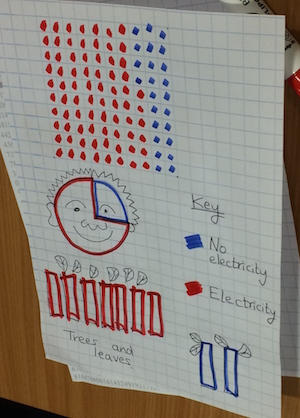 Key
No
electricity
Electricity
Trees and
leaves